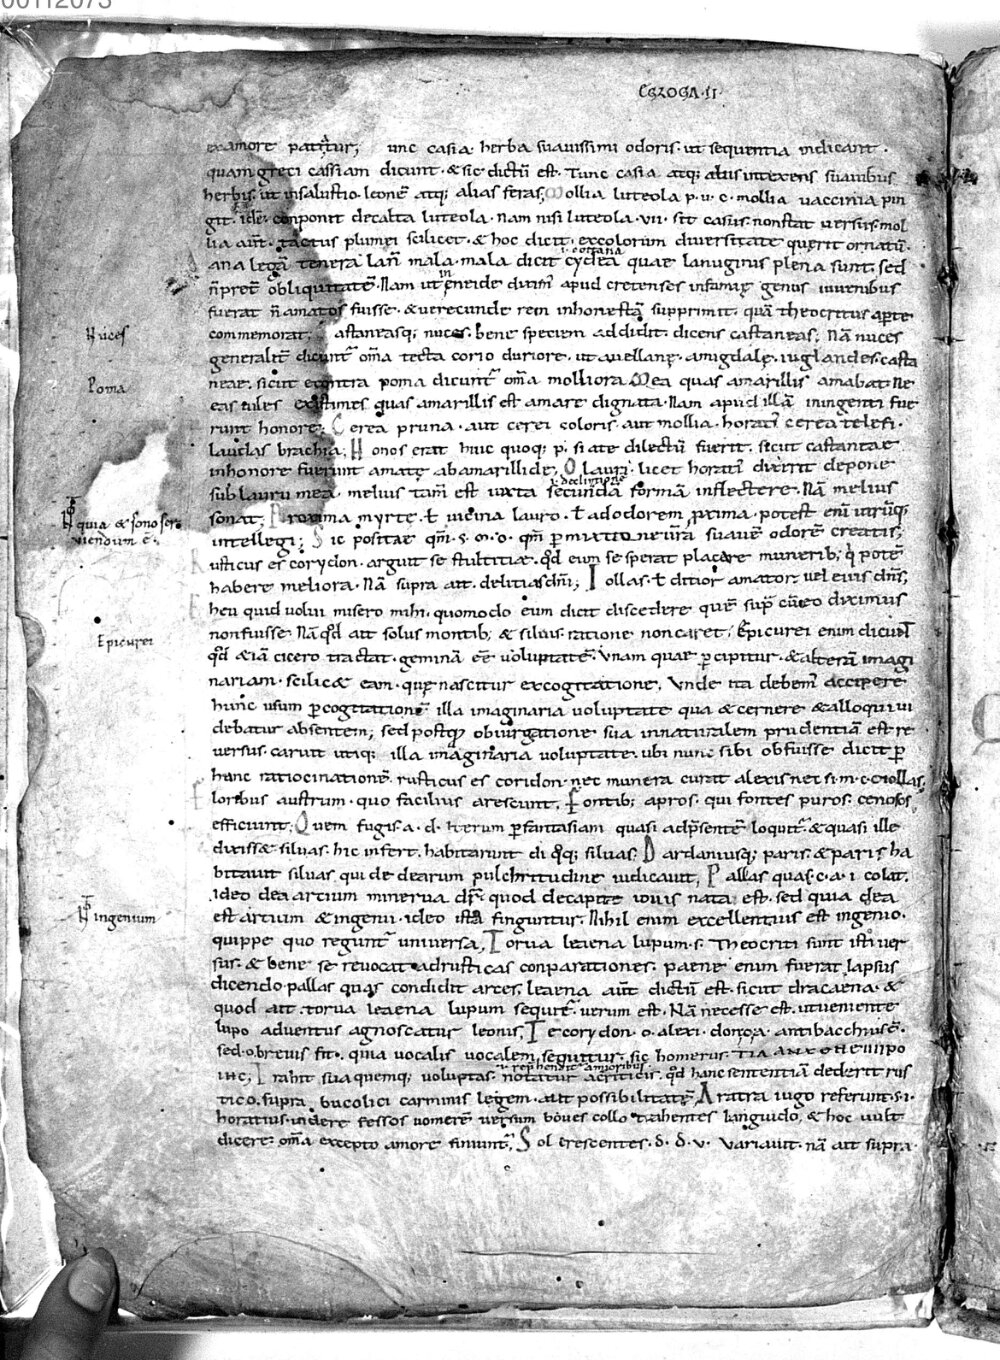 00112073
EGLOGA·II·
ex amore patitur; unc casia herba suauissimi odoris· ut sequentia indicant·
quam greci cassiam dicunt· & sic dictũ est· Tunc casia atq; aliis intexens suauibus
herbis· ut in salustio· leonẽ atq; alias feras; Mollia luteola p· u· c· mollia uaccinia pin
git· idẽ conponit decalta luteola· nam nisi luteola· VII· sit casus· non stat uersus· mol
lia aũt· tactus plumei scilicet· & hoc dicit· ex colorum diuersitate querit ornatũ·
i· cottana
ana legã tenera lañ mala· mala dicit cydea quae lanuginis plena sunt· sed
in
ñ pret obliquitatẽ· Nam ut eneide diximꝰ apud cretenses infamię genus iuuenibus
fuerat ñ amatos fuisse· & uerecunde rem inhonestã supprimit· quã theocritus aperte
commemorat; astaneasq; nuces· bene speciem addidit· dicens castaneas; Nã nuces
generalit̃ dicunt̃ om̃a tecta corio duriore· ut auellanę· amigdalę· iuglandes· casta
neae· sicut econtra poma dicunt̃ om̃a molliora· Mea quas amarillis amabat· Ne
eas uiles existimes quas amarillis est amare dignata· Nam apud illã in ingenti fue
runt honore; Cerea pruna· aut cerei coloris· aut mollia· horatiꝰ cerea telefi·
laudas brachia; Honos erit huic quoq; p· si ate dilectũ fuerit· sicut castaneae
in honore fuerunt amatę ab amarillide; O lauri· licet horatiꝰ dixerit depone
i· declinationẽ
sub lauru mea· melius tam̃ est iuxta secundã formã inflectere· Nã melius
sonat; Proxima myrte· ł uicina lauro· ł adodorem prima· potest eni utrũq;
intellegi; Sic positae qm̃· s· m· o· qm̃ permixtione ur̃a suauẽ odorẽ creatis;
Rusticus es corydon· arguit se stultitiae· qd eum se sperat placere munerib; q potẽ
habere meliora· Nã supra ait· delitias dñi; Iollas· ł ditior amator uel eius dñs;
heu quid uolui misero mihi· quomodo eum dicit discedere quẽ sup̃ cũ eo diximus
non fuisse· Nã qd ait solus montib; & siluis· ratione non caret; Epicurei enim dicunt
qd & iã cicero tractat· geminã eẽ uoluptatẽ· Vnam quae percipitur· & alteram imagi
nariam· scilicet eam· quę nascitur ex cogitatione· Vnde ita debemꝰ accipere
hunc usum p cogitationẽ illa imaginaria uoluptate qua & cernere & alloqui ui
debatur absentem; sed postq obiurgatione sua in naturalem prudentiã est re
uersus· caruit utiq; illa imaginaria uoluptate· ubi nunc sibi obfuisse dicit per
hanc ratiocinationẽ· rusticus es coridon· nec munera curat alexis nec si· m· c· c· iollas·
Floribus austrum· quo facilius arescunt· Fontib; apros· qui fontes puros· cenosos
efficiunt; Quem fugis· a· d· Iterum p fantasiam quasi ad p̃sentẽ loquit̃· & quasi ille
dixiss& siluas· hic infert· habitarunt di qq; siluas· Dardaniusq; paris· & paris ha
bitauit siluas· qui de dearum pulchritudine iudicauit; Pallas quas· c· a· i· colat·
Ideo dea artium minerua dr̃· quod decapite iouis nata est· sed quia dea
est artium & ingenii· ideo ista finguntur· Nihil enim excellentius est ingenio·
quippe quo regunt̃ uniuersa; Torua leaena lupum· s· Theocriti sunt isti uer
sus· & bene se reuocat ad rusticas conparationes· paene enim fuerat lapsus
dicendo pallas quas condidit arces· leaena aũt dictũ est· sicut dracaena· &
quod ait· torua leaena lupum sequit̃· uerum est· Nã necesse est· ut ueniente
lupo aduentus agnoscatur leonis; Te corydon· o· alexi· donoa· antibacchiusẽ·
sed· o· breuis fit· quia uocalis uocalem sequitur· sic homerus·
ł rep̃hendit̃ amioribus
Trahit sua quemq; uoluptas· notatur a criticis· qd hanc sententiam dederit rus
tico· supra bucolici carminis legem· aut possibilitatẽ; Aratra iugo referunt· s· i·
horatius· uidere fessos uomerẽ uersum boues collo trahentes languido; & hoc uult
dicere· om̃a excepto amore finiunt̃; Sol crescentes· d· d· u· Variauit· nã ait supra·
Nuces
Poma
N quia & sono ser
uiendum ẽ·
Epicurei
N ingenium